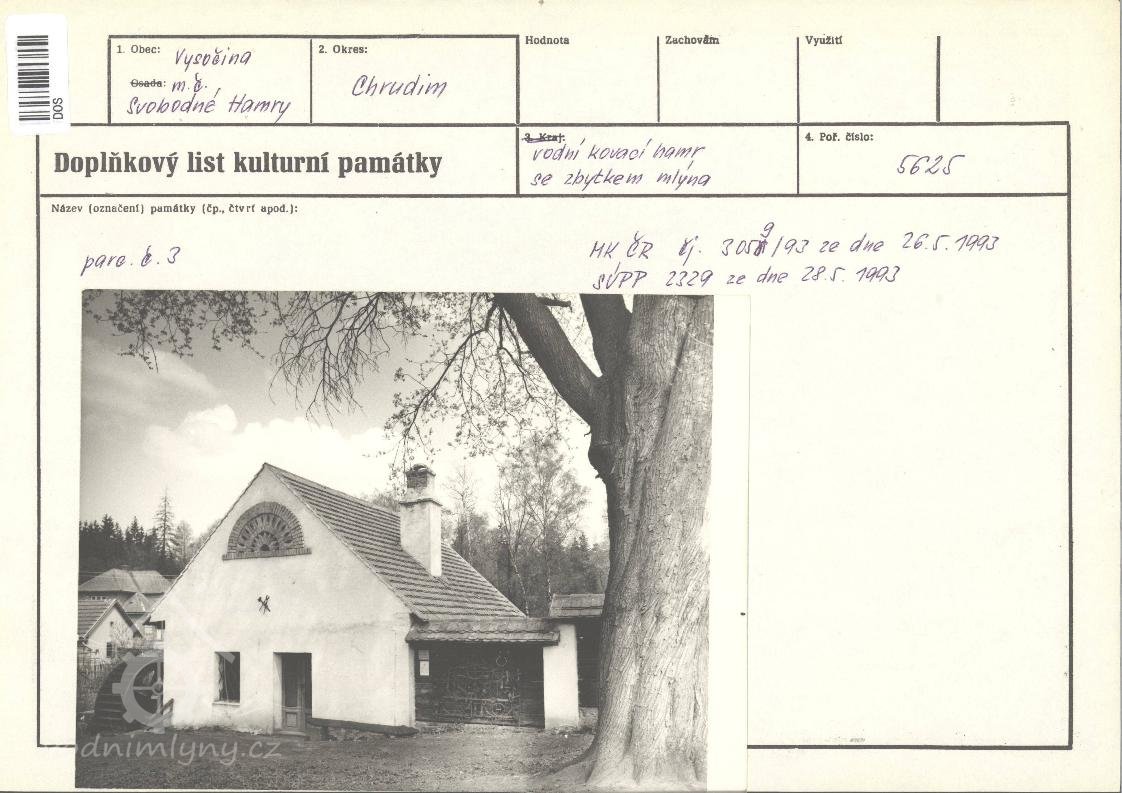 DOS
1. Obec: Vysočina
Osada: m.č.
Svobodné Hamry
2. Okres:
Chrudim
Hodnota
Zachovám
Využití
Doplňkový list kulturní památky
3. Kraj:
vodní kovací hamr
se zbytkem mlýna
4. Poř. číslo:
5625
Název (označení) památky (čp., čtvrť apod.):
parc. č. 3
MK ČR čj. 3059/93 ze dne 26.5.1993
SÚPP 2329 ze dne 28.5.1993
vodnimlyny.cz